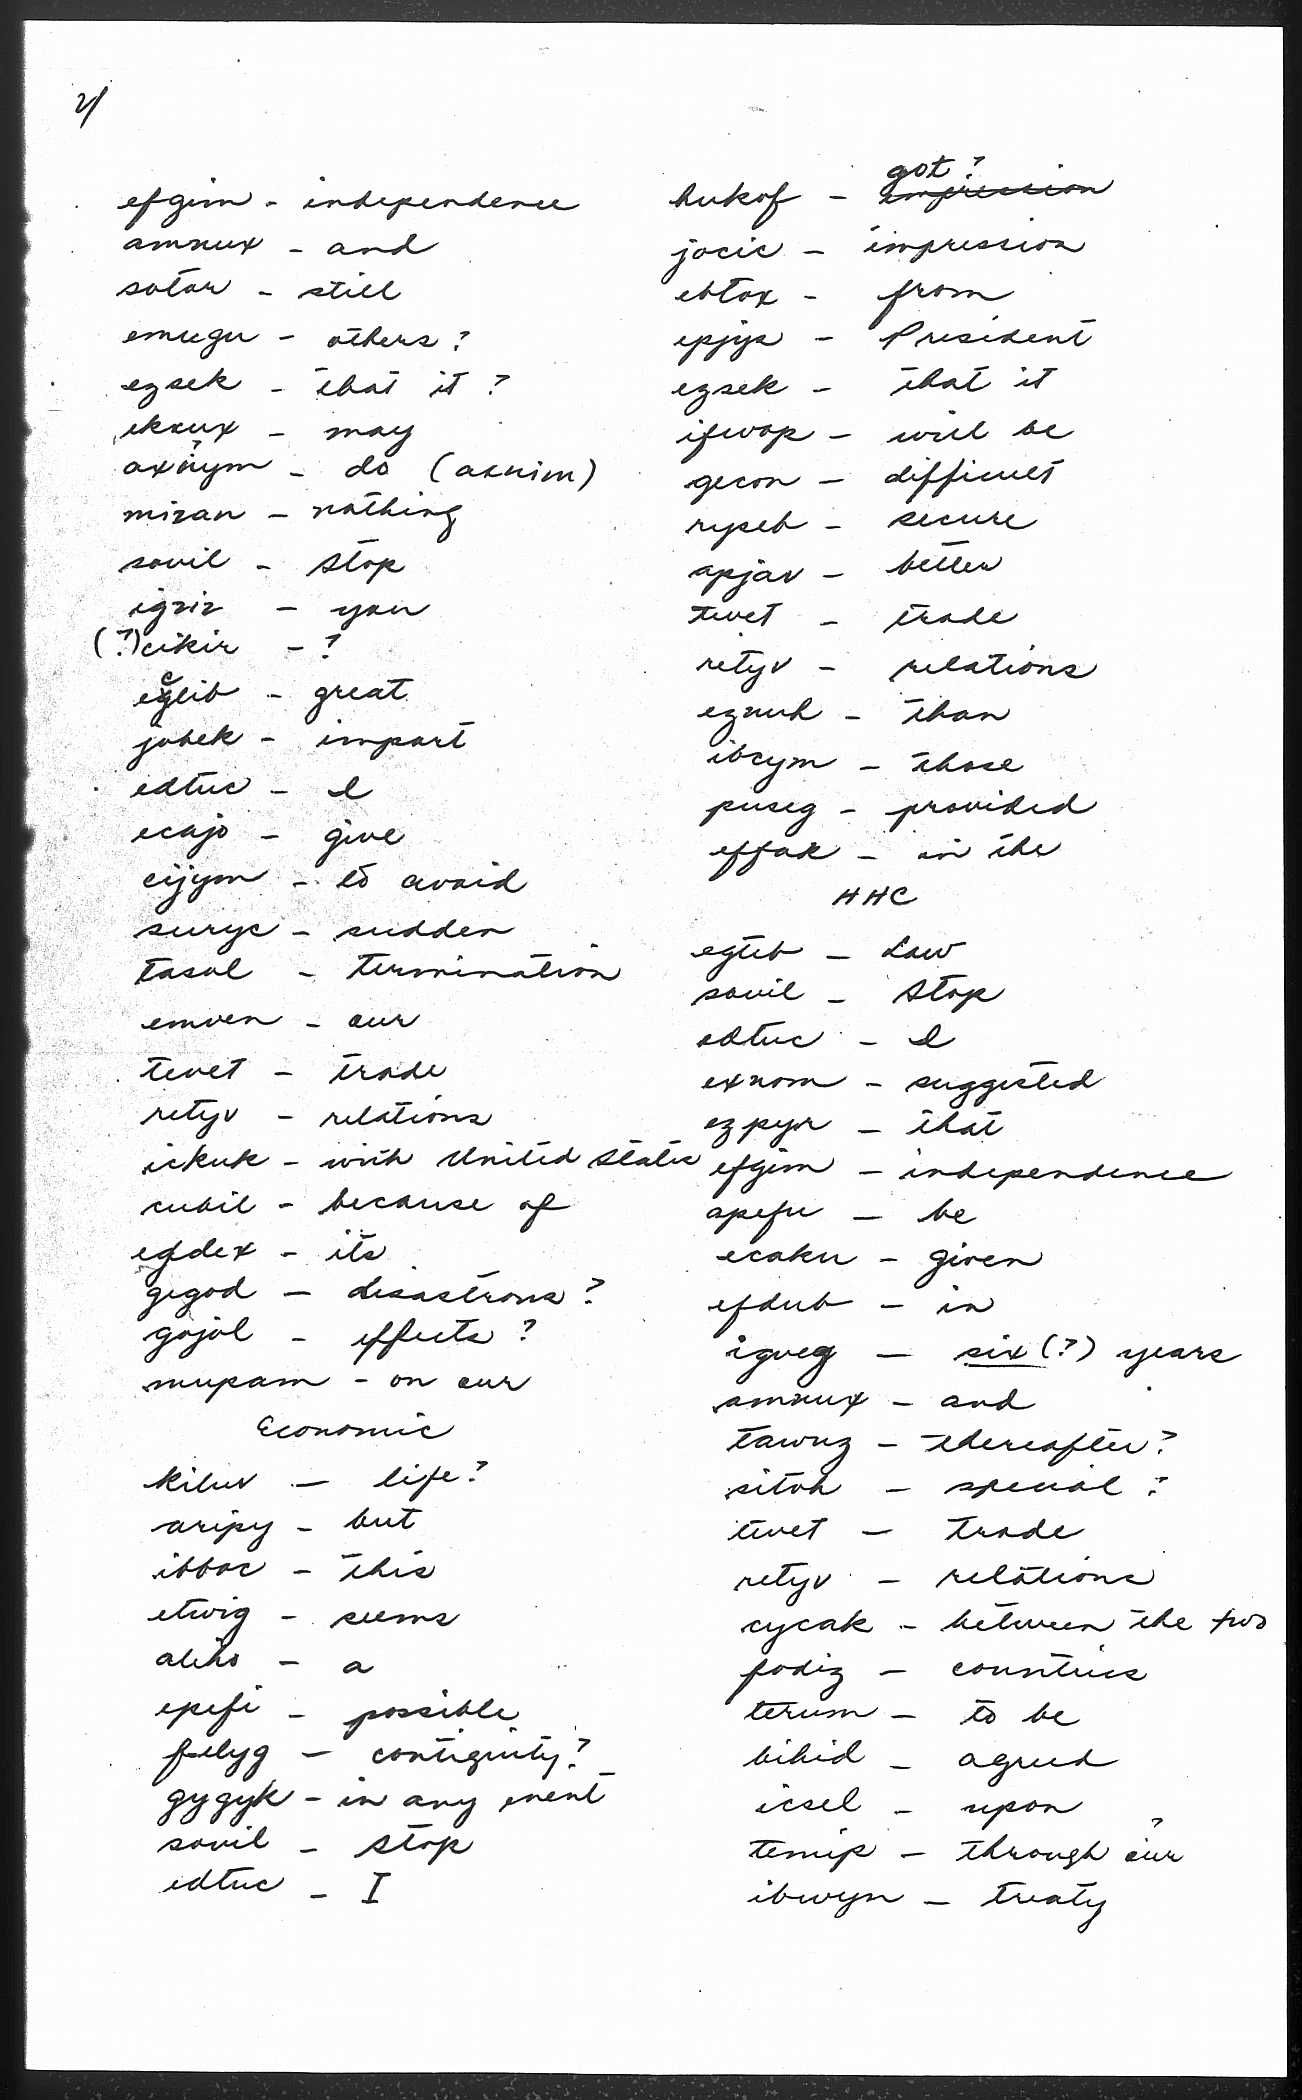 2/
efgim - independence
amnux - and
sotar - still
emugu - others?
ezsek - that it?
ekxux - may
axnym - do (axnim)
mizan - nothing
sovil - stop
igziz - you
(?) cikir - ?
eglib - great
c
jobek - import
edtuc - I
ecajo - give
cijym - to avoid
suryc - sudden
tasol - termination
emven - our
tevet - trade
retyv - relations
ickuk - with United States
cubil - because of
efdex - its
gegod - disastrous?
gojol - effects?
mupam - on our
Economic
kiluv - life?
aripy - but
ibboc - this
etwig - seems
aliho - a
epefi - possible
felyg - contiguity?
gygyk - in any event
sovil - stop
edtuc - I
got?
hukof - impression
jocic - impression
ebtox - from
epjys - President
ezsek - that it
ifwop - will be
gecon - difficult
ryseb - secure
apjav - better
tevet - trade
retyv - relations
eznuh - than
ibcym - those
puseg - provided
effak - in the
HHC
egteb - Law
sovil - stop
edtuc - I
exnom - suggested
ezpyr - that
efgim - independence
apefu - be
ecaku - given
efdub - in
igveg - six (?) years
amnux - and
tawuz - thereafter?
sitoh - special?
tevet - trade
retyv - relations
cycak - between the two
fodiz - countries
terum - to be
bihid - agreed
icsel - upon
temip - through our
?
ibwyn - treaty